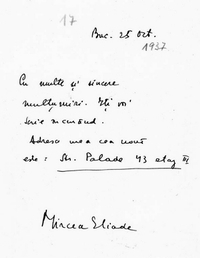 17
Buc. 25 oct.
1937
Cu multe și sincere
mulțumiri. Îți voi
scrie in curând.
Adresa mea cea nouă
este: Str. Palade 43 etaj III
Mircea Eliade